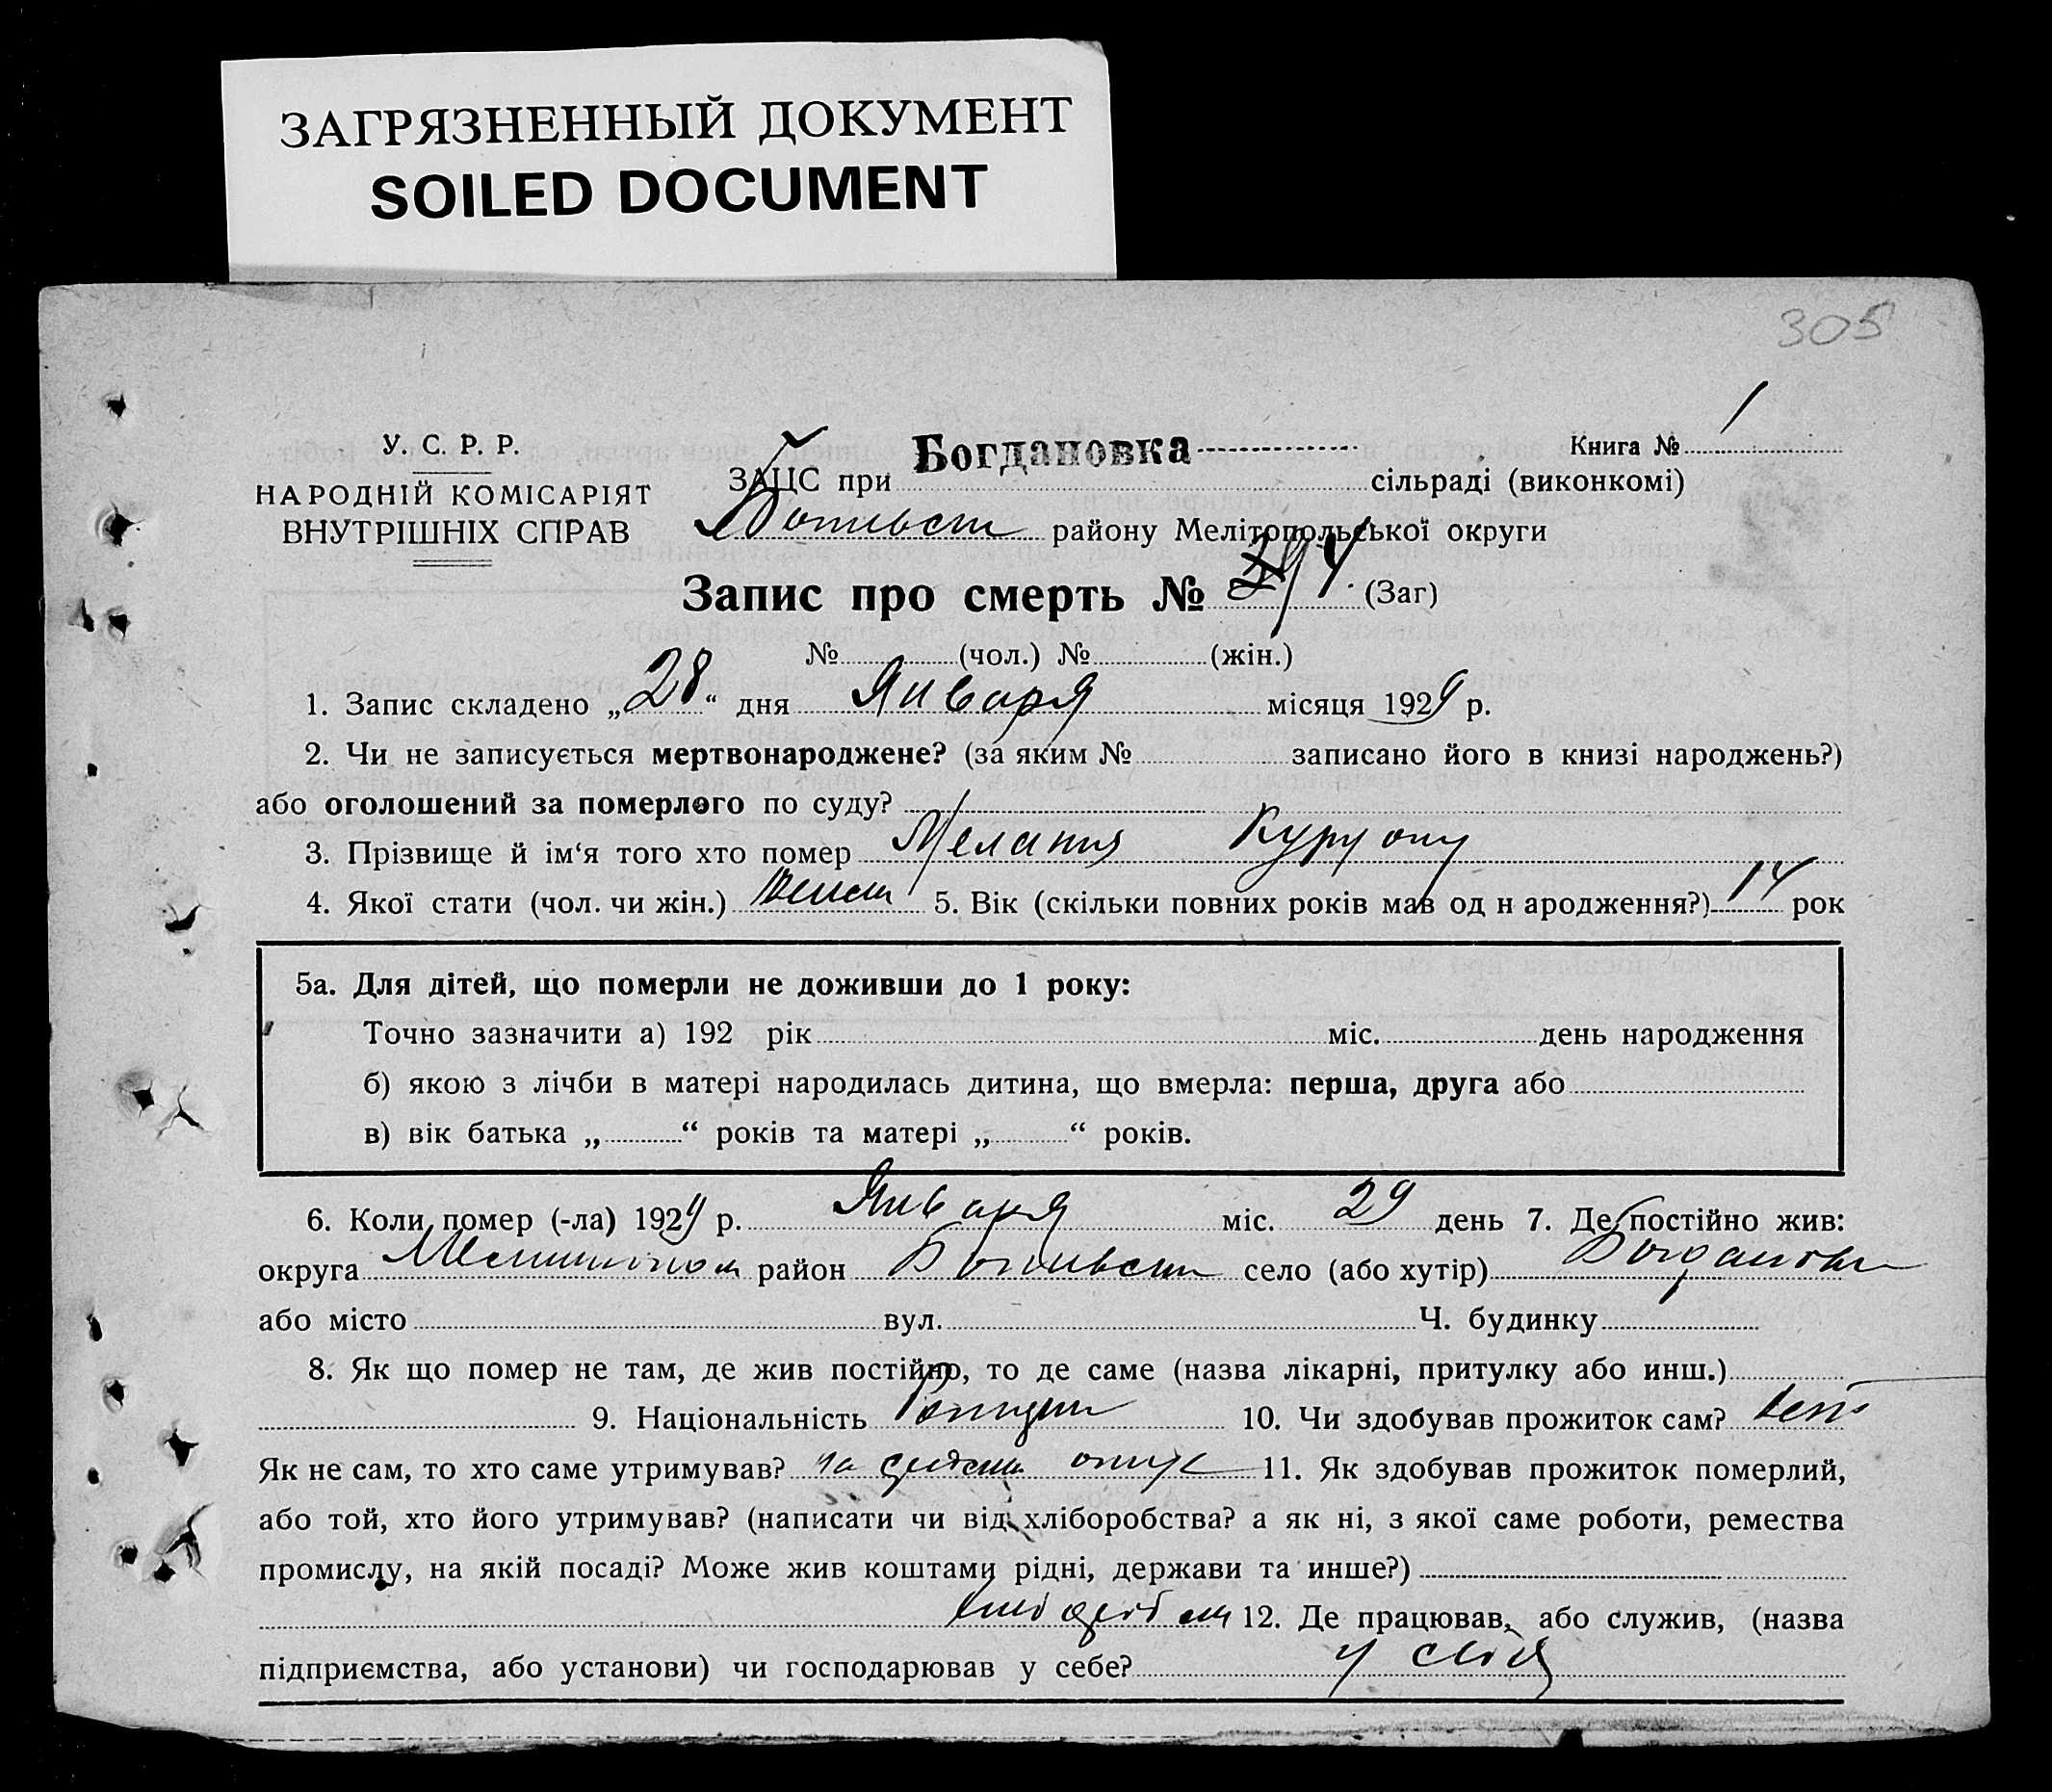 ЗАГРЯЗНЕННЫЙ ДОКУМЕНТ
SOILED DOCUMENT
305
У. С. Р. Р.
НАРОДНІЙ КОМІСАРІЯТ
ВНУТРІШНІХ СПРАВ
Богдановка
Книга № 1
ЗАЦС при сільраді (виконкомі)
району Мелітопольської округи
Запис про смерть № 4 (Заг)
№ (чол.) № (жін.)
1. Запис складено „28“ дня Января місяця 1929 р.
2. Чи не записується мертвонароджене? (за яким № записано його в книзі народжень?)
або оголошений за померлого по суду?
3. Прізвище й ім‘я того хто помер Мелания
4. Якої стати (чол. чи жін.) 5. Вік (скільки повних років мав од н ародження?) 14 рок
5а. Для дітей, що померли не доживши до 1 року:
Точно зазначити а) 192 рік міс. день народження
б) якою з лічби в матері народилась дитина, що вмерла: перша, друга або
в) вік батька „ “ років та матері „ “ років.
6. Коли помер (-ла) 1929 р. Января міс. 29 день 7. Де постійно жив:
округа район село (або хутір)
або місто вул. Ч. будинку
8. Як що помер не там, де жив постійно, то де саме (назва лікарні, притулку або инш.)
9. Національність 10. Чи здобував прожиток сам?
Як не сам, то хто саме утримував? 11. Як здобував прожиток померлий,
або той, хто його утримував? (написати чи від хліборобства? а як ні, з якої саме роботи, ремества
промислу, на якій посаді? Може жив коштами рідні, держави та инше?)
12. Де працював, або служив, (назва
підприємства, або установи) чи господарював у себе? у себя